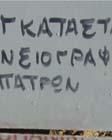 ΓΚΑΤΑΣΤ
ΝΕΙΟΓΡΑΦ
ΠΑΤΡΩΝ